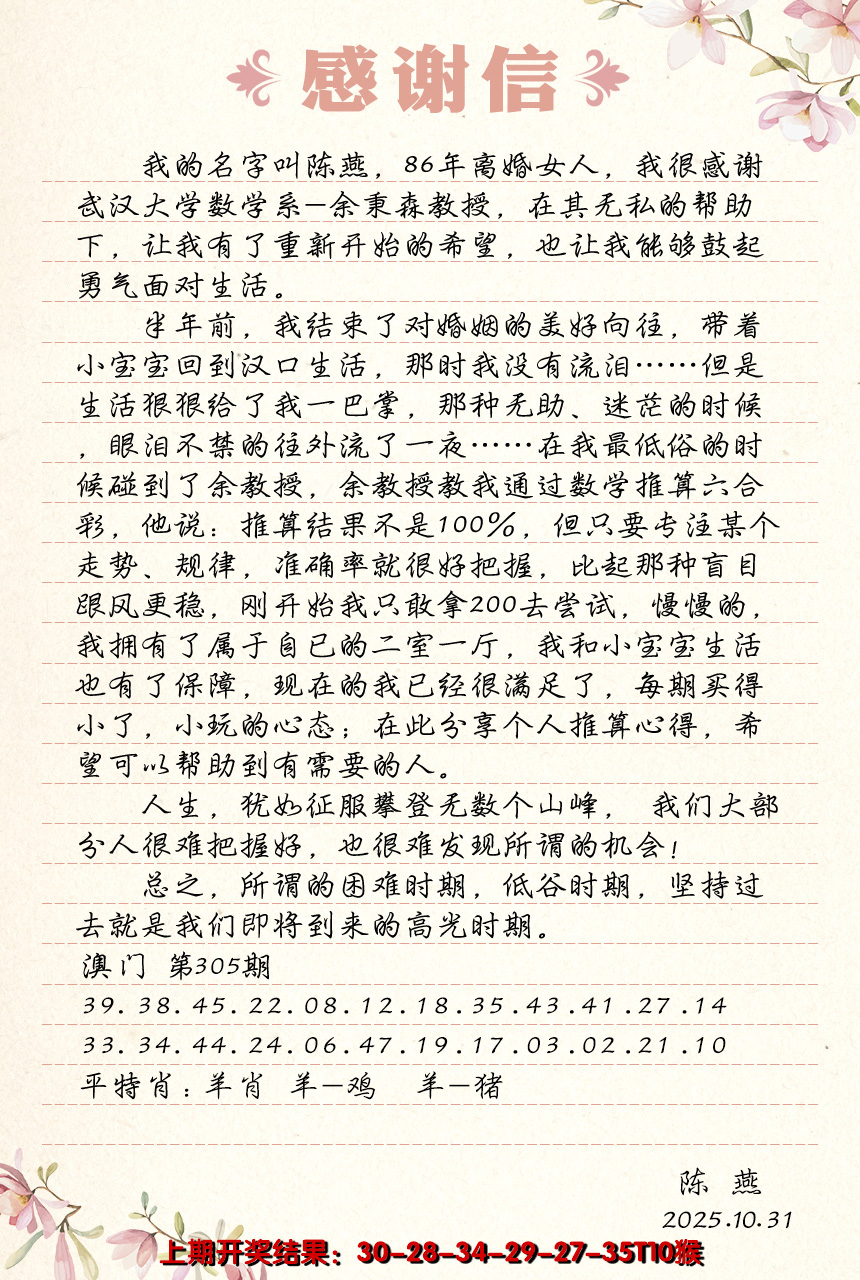 感谢信
我的名字叫陈燕，86年离婚女人，我很感谢
武汉大学数学系—余秉森教授，在其无私的帮助
下，让我有了重新开始的希望，也让我能够鼓起
勇气面对生活。
半年前，我结束了对婚姻的美好向往，带着
小宝宝回到汉口生活，那时我没有流泪……但是
生活狠狠给了我一巴掌，那种无助、迷茫的时候
，眼泪不禁的往外流了一夜……在我最低俗的时
候碰到了余教授，余教授教我通过数学推算六合
彩，他说：推算结果不是100%，但只要专注某个
走势、规律，准确率就很好把握，比起那种盲目
跟风更稳，刚开始我只敢拿200去尝试，慢慢的，
我拥有了属于自已的二室一厅，我和小宝宝生活
也有了保障，现在的我已经很满足了，每期买得
小了，小玩的心态；在此分享个人推算心得，希
望可以帮助到有需要的人。
人生，犹如征服攀登无数个山峰， 我们大部
分人很难把握好，也很难发现所谓的机会！
总之，所谓的困难时期，低谷时期，坚持过
去就是我们即将到来的高光时期。
澳门 第305期
39.38.45.22.08.12.18.35.43.41.27.14
33.34.44.24.06.47.19.17.03.02.21.10
平特肖：羊肖 羊—鸡 羊—猪
陈 燕
2025.10.31
上期开奖结果：30-28-34-29-27-35T10猴